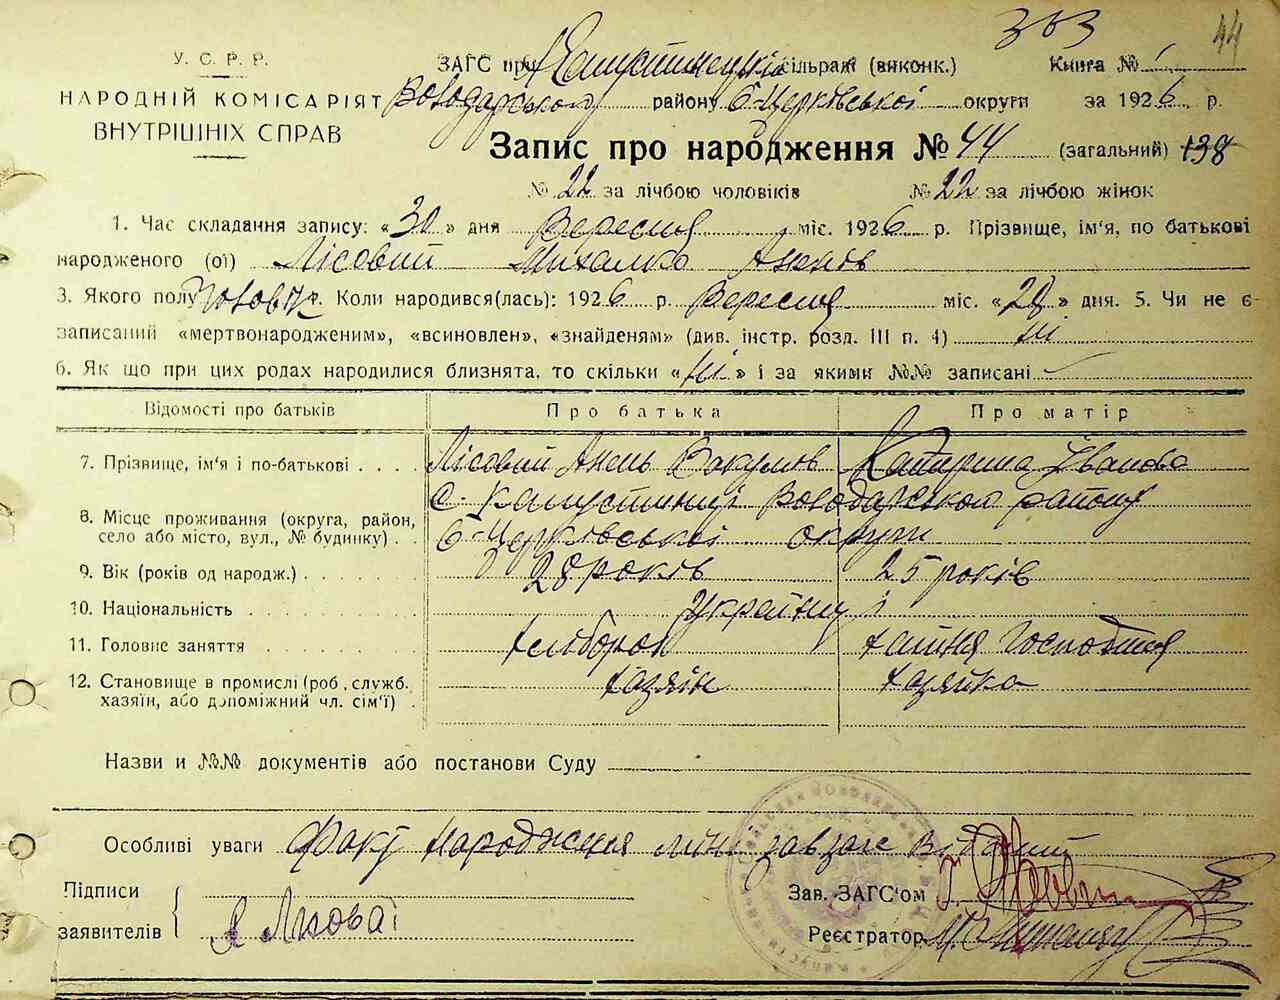 363 44
У. С. Р. Р.
НАРОДНІЙ КОМІСАРІЯТ
ВНУТРІШНІХ СПРАВ
ЗАГС при Капустинецькій сільраді (виконк.) Книга № 1
Володарського району Б-Церківської округи за 1926 р.
Запис про народження № 44 (загальний) 138
№ 22 за лічбою чоловіків № 22 за лічбою жінок
1. Час складання запису: «30» дня Вересня міс. 1926 р. Прізвище, ім'я, по батькові
народженого (ої) Лісовий Михалко
3. Якого полу Чоловік. Коли народився(лась): 1926 р. Вересня міс. «28» дня. 5. Чи не є
записаний «мертвонародженим», «всиновлен», «знайденям» (див. інстр. розд. III п. 4) ні
6. Як що при цих родах народилися близнята, то скільки «ні» і за якими №№ записані
Відомості про батьків Про батька Про матір
7. Прізвище, ім'я і по-батькові . . . . Лісовий Вакулов Катерина Іванова
8. Місце проживання (округа, район, с. Капустинці Володарського району
село або місто, вул., № будинку) . . Б-Церківської округи
9. Вік (років од народж.) . . . . . . . 28 років 25 років
10. Національність . . . . . . . . . . Українці
11. Головне заняття . . . . . . . . . Хлібороб хатня Господиня
12. Становище в промислі (роб., служб. хазяїн хазяйка
хазяїн, або допоміжний чл. сім'ї) .
Назви и №№ документів або постанови Суду
Особліві уваги Факт народження мені завзагс відомий
Підписи
заявителів { Лісовий
Зав. ЗАГС'ом
Реєстратор